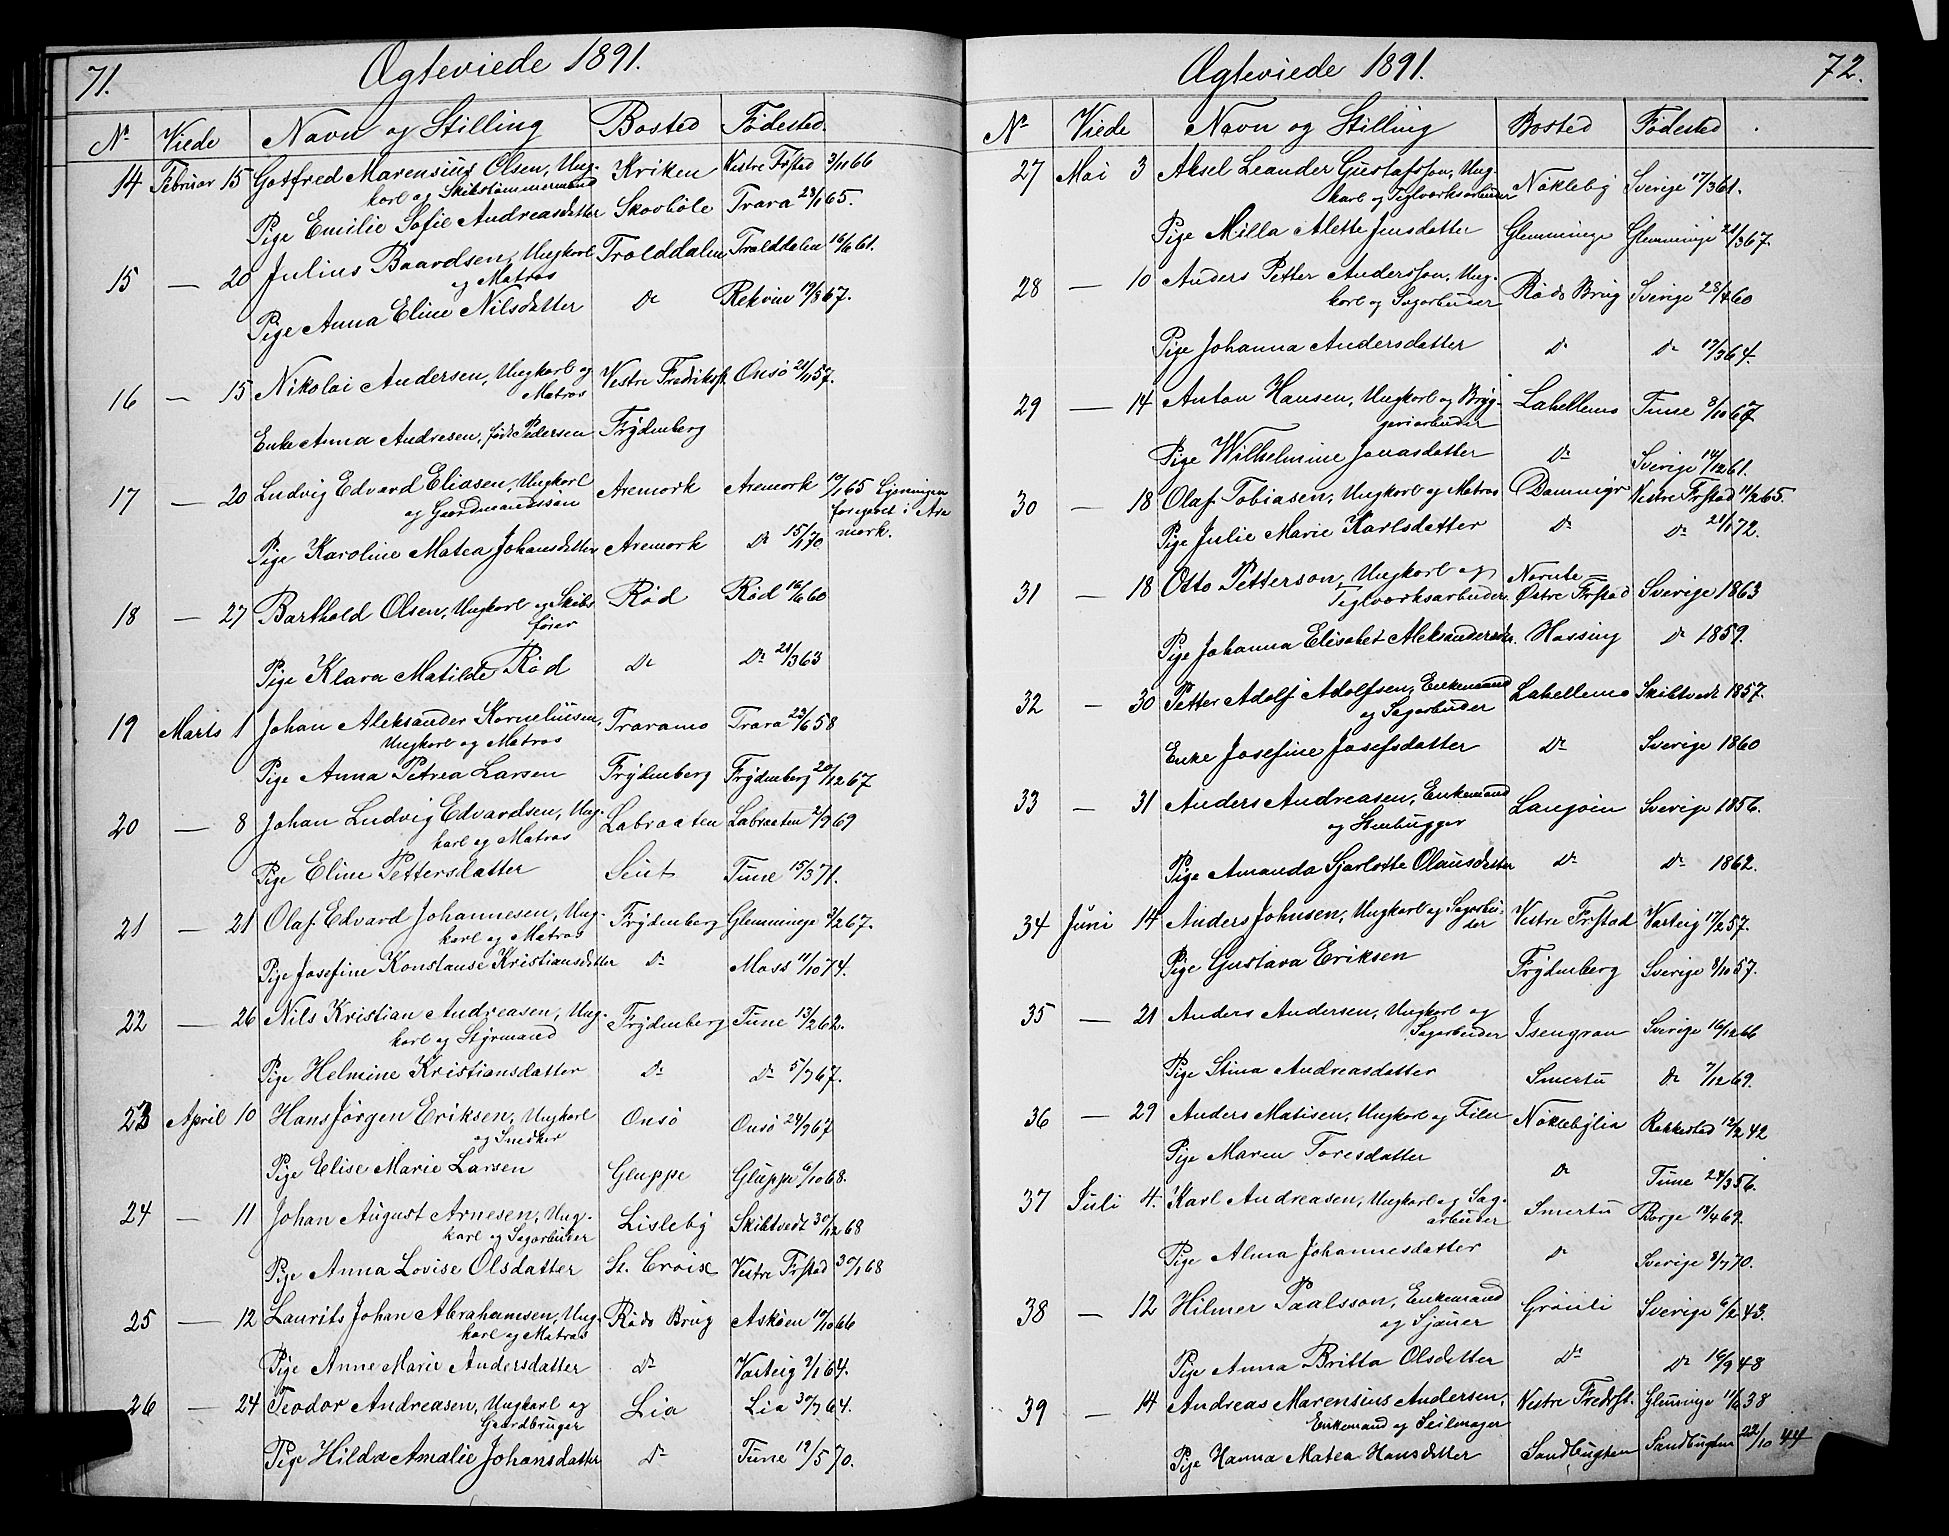 71.
Ægteviede 1891.
No Viede Navn og Stilling Bosted Fødested.
14 Februar 15 Gotfred Marensius Olsen, Ung- Kriken Vestre Frstad 3/11 66
karl og Skibstømmermand
Pige Emilie Sofie Andreasdatter Skovbøle Trara 22/1 65.
15 — 20 Julius Baardsen, Ungkarl Trolddalen Trolddalen 16/6 61.
og Matros
Pige Anna Eline Nilsdatter Do Rekvin 19/3 67.
16 — 15 Nikolai Andersen, Ungkarl og Vestre Fredrikst. Onsø 21/11 57.
Matros
Enke Anna Andresen, født Pedersen Frydenberg
17 — 20 Ludvig Edvard Eliasen, Ungkarl Aremark Aremark 19/1 65 Lysningen
og Gaardmandssøn foregaaet i Are
Pige Karoline Matea Johansdatter Aremark Do 15/11 70 mark.
18 — 27 Barthold Olsen, Ungkarl og Skibs Rød Rød 16/6 60
fører
Pige Klara Matilde Rød Do Do 21/3 63
19 Marts 1 Johan Aleksander Korneliusen, Traramo Trara 23/6 58
Ungkarl og Matros
Pige Anna Petrea Larsen Frydenberg Frydenberg 20/12 67
20 — 8 Johan Ludvig Edvardsen, Ung- Labraaten Labraaten 2/9 69
karl og Matros
Pige Eline Pettersdatter Seut Tune 15/3 71.
21 — 21 Olaf Edvard Johannesen, Ung- Frydenberg Glemminge 3/2 67.
karl og Matros
Pige Josefine Konstanse Kristiansdatter Do Moss 11/10 74.
22 — 26 Nils Kristian Andreasen, Ung- Frydenberg Tune 13/2 62.
karl og Styrmand
Pige Helmine Kristiansdatter Do Do 5/7 67.
23 April 10 Hans Jørgen Eriksen, Ungkarl Onsø Onsø 24/9 67
og Snedker
Pige Elise Marie Larsen Gluppe Gluppe 6/10 68.
24 — 11 Johan August Arnesen, Ung- Lisleby Skibtvedt 30/12 68
karl og Sagarbeider
Pige Anna Lovise Olsdatter St. Croix Vestre Frstad 30/1 68
25 — 12 Laurits Johan Abrahamsen, Ung- Røds Brug Askøen 19/10 66
karl og Matros
Pige Anne Marie Andersdatter Do Varteig 9/1 64.
26 — 24 Teodor Andreasen, Ungkarl og Lia Lia 30/7 64.
Gaardbruger
Pige Hilda Amalie Johansdatter Do Tune 19/5 70.
72.
Ægteviede 1891.
No Viede Navn og Stilling Bosted Fødested.
27 Mai 3 Aksel Leander Gustafsson, Ung- Nøkleby Sverige 17/3 61.
karl og Teglværksarbeider
Pige Milla Alette Jensdatter Glemminge Glemminge 21/3 67.
28 — 10 Anders Petter Andersson, Ung- Røds Brug Sverige 28/4 60
karl og Sagarbeider
Pige Johanna Andersdatter Do Do 17/3 64.
29 — 14 Anton Hansen, Ungkarl og Bryg- Lahellemo Tune 8/10 67
geriarbeider
Pige Wilhelmine Jonasdatter Do Sverige 14/12 61.
30 — 18 Olaf Tobiasen, Ungkarl og Matros Damnigr Vestre Frstad 11/2 65.
Pige Julie Marie Karlsdatter Do Do 21/1 72.
31 — 18 Otto Petterson, Ungkarl og Narnte
Teglværksarbeider. Østre Frstad Sverige 1863
Pige Johanna Elisabet Aleksandersdr. Hassing Do 1859.
32 — 30 Petter Adolf Adolfsen, Enkemand Lahellemo Skibtvedt 1857.
og Sagarbeider
Enke Josefine Josefsdatter Do Sverige 1860
33 — 31 Anders Andreasen, Enkemand Langøien Sverige 1856.
og Stenhugger
Pige Amanda Sjarlotte Olausdatter Do Do 1862.
34 Juni 14 Anders Johnsen, Ungkarl og Sagarbei- Vestre Frstad Varteig 17/2 57.
der
Pige Gustava Eriksen Frydenberg Sverige 8/10 57.
35 — 21 Anders Andersen, Ungkarl og Isengran Sverige 16/12 66
Sagarbeider
Pige Stina Andreasdatter Smertu Do 7/12 69.
36 — 29 Anders Matisen, Ungkarl og Filer Nøklebylia Rakkestad 12/2 42
Pige Maren Toresdatter Do Tune 24/3 56.
37 Juli 4. Karl Andreasen, Ungkarl og Sag- Smertu Borge 13/4 69.
arbeider
Pige Alma Johannesdatter Do Sverige 8/7 70.
38 — 12 Hilmer Paalsson, Enkemand Grønli Sverige 6/2 43.
og Sjauer
Pige Anna Britta Olsdatter Do Do 16/9 48
39 — 14 Andreas Marensius Andersen, Vestre Fredrst. Glemminge 11/6 38
Enkemand og Seilmager
Pige Hanna Matea Hansdatter Sandbugten Sandbugten 22/10 44